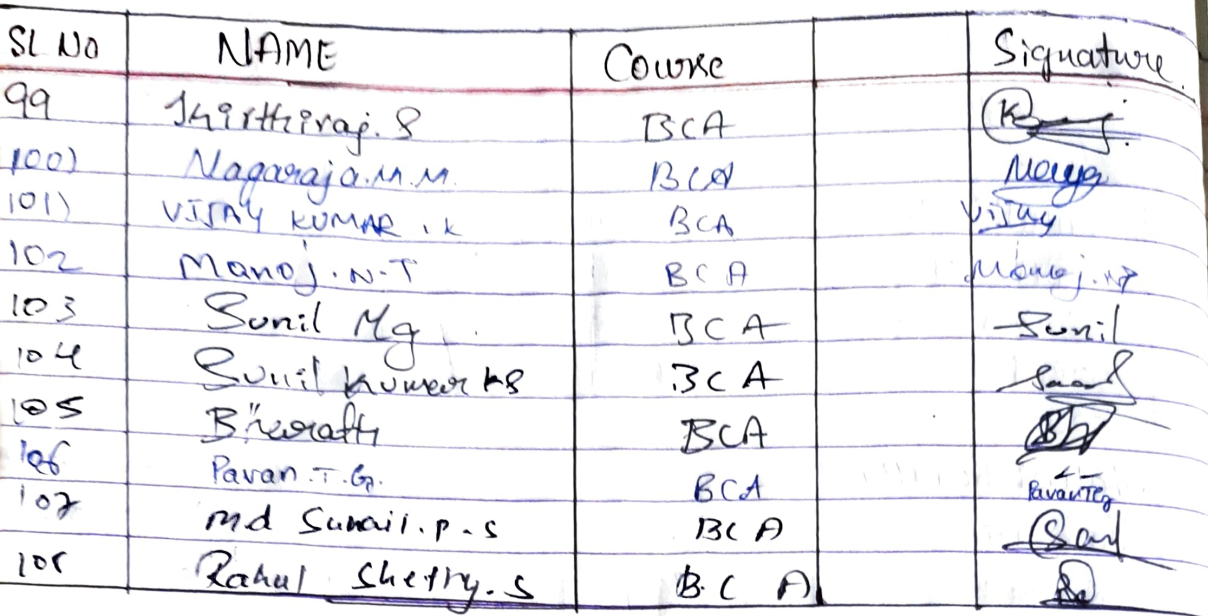 SL NO NAME Course Signature
99 Khirthiraj. S BCA
100) Nagaraja.M.M. BCA
101) VIJAY KUMAR . K BCA Vijay
102 Manoj . N-T BCA Manoj . NT
103 Sunil Mg BCA Sunil
104 Sunil Kumar KS BCA
105 BCA
106 Pavan .T.G. BCA PavanTG
107 md Sunail.p.s BCA
108 Rahul Shetty.s B.C A